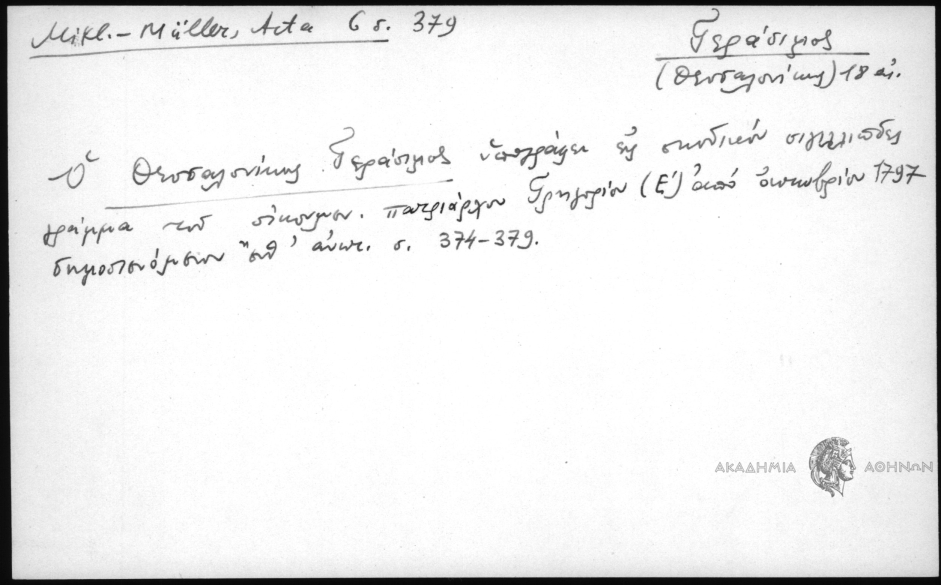 Mikl.- Müller, Acta 6 σ. 379
Γεράσιμος
(Θεσσαλονίκης) 18 αι.
Ὁ Θεσσαλονίκης Γεράσιμος ὑπογράφει εἰς συνοδικόν σιγιλλιῶδες
γράμμα τοῦ οἰκουμεν. πατριάρχου Γρηγορίου (Ε΄) ἀπό ὀκτωβρίου 1797
δημοσιευόμενον ἀνωτ. σ. 374-379.
ΑΚΑΔΗΜΙΑ ΑΘΗΝΩΝ